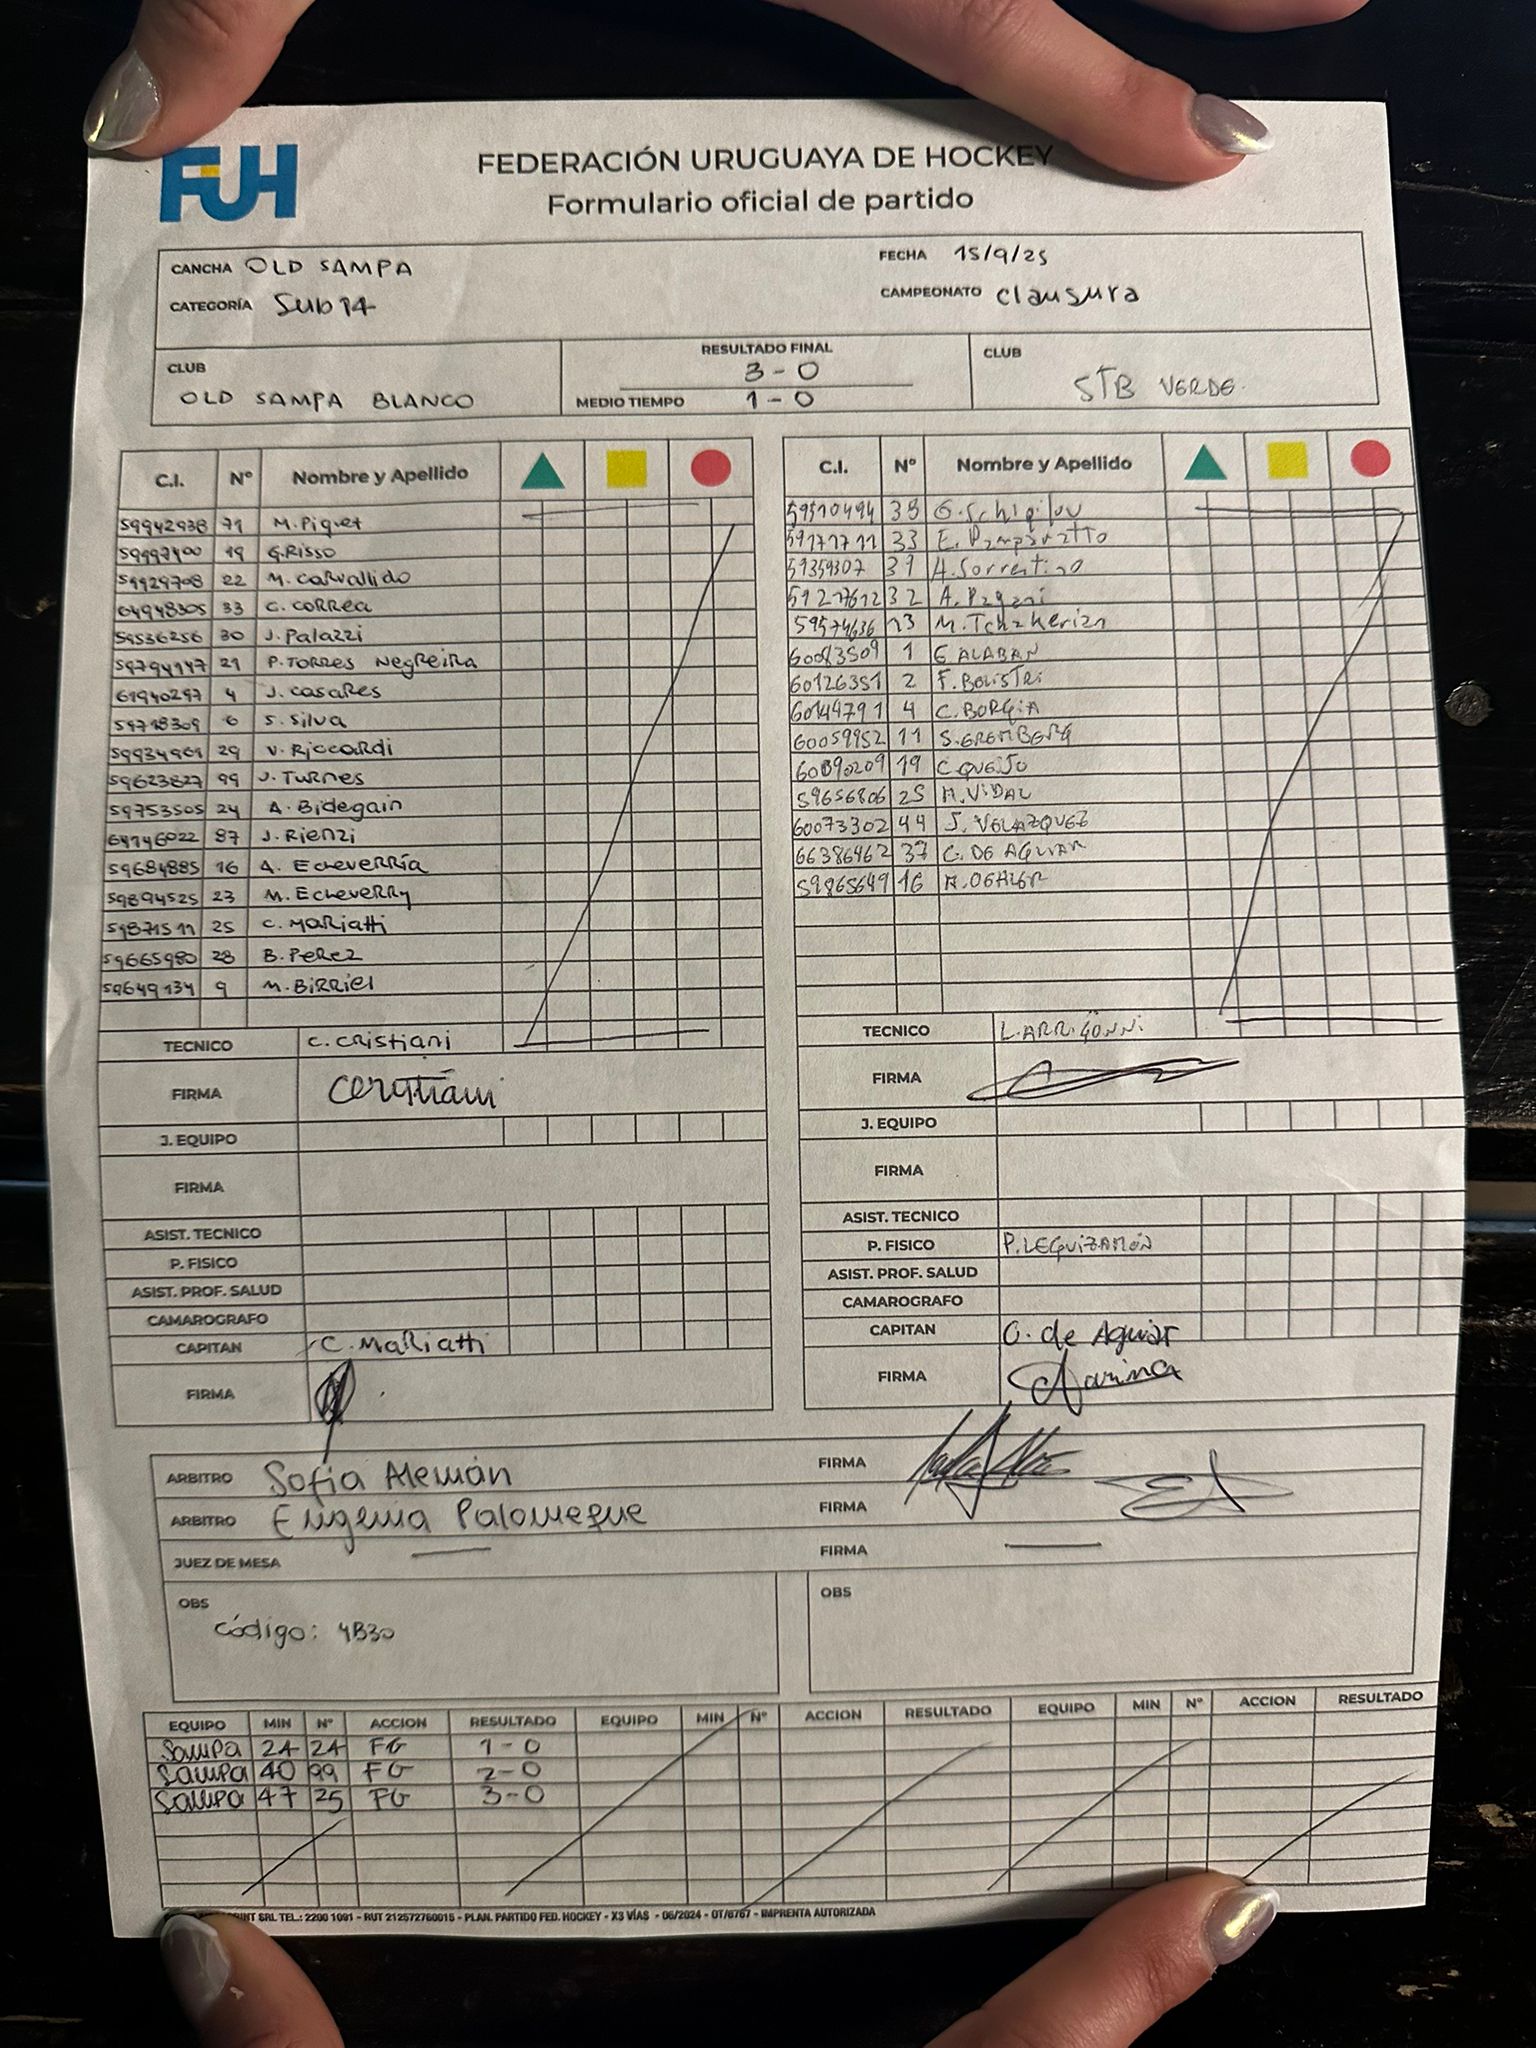 FUH
FEDERACIÓN URUGUAYA DE HOCKEY
Formulario oficial de partido
CANCHA OLD SAMPA FECHA 15/9/25
CATEGORÍA Sub14 CAMPEONATO Clausura
CLUB OLD SAMPA BLANCO
RESULTADO FINAL 3 - 0
MEDIO TIEMPO 1 - 0
CLUB STB VERDE
C.I. Nº Nombre y Apellido
59942938 71 M. Piquet
19 G. Risso
59929708 22 M. Carvallido
64948305 33 C. CORREA
59536256 30 J. Palazzi
59794147 21 P. TORRES NegReiRa
61940297 4 J. Casares
59718309 6 S. Silva
59934969 29 V. Riccardi
59623827 99 J. TURNES
59753505 24 A. Bidegain
64146022 87 J. Rienzi
59684885 16 A. EcheveRRía
59894525 23 M. EcheveRRy
59871511 25 C. MaRiatti
59665980 28 B. PeRez
59649134 9 M. BiRRiel
TECNICO C. CRistiani
FIRMA
J. EQUIPO
FIRMA
ASIST. TECNICO
P. FISICO
ASIST. PROF. SALUD
CAMAROGRAFO
CAPITAN C. MaRiatti
FIRMA
C.I. Nº Nombre y Apellido
59510494 35
59171711 33 E.
59359307 31 A. Sorrentino
59127612 32 A. Pagani
59574636 13 M. Tchakerian
60083509 1
60126351 2 F. BOLISTRI
60144791 4 C. BORGIA
60059952 11 S. EREMBERG
60890209 19 C. QUEIJO
59656806 25 M. VIDAL
60073302 44 J. VELAZQUEZ
66386462 37 C. DE AGUIAR
59865649 16
TECNICO L. ARRIGONNI
FIRMA
J. EQUIPO
FIRMA
ASIST. TECNICO
P. FISICO P. LEGUIZAMÓN
ASIST. PROF. SALUD
CAMAROGRAFO
CAPITAN C. de Aguiar
FIRMA
ARBITRO Sofía Alemán FIRMA
ARBITRO Eugenia Palomeque FIRMA
JUEZ DE MESA — FIRMA —
OBS
Código: 4B30
OBS
EQUIPO MIN Nº ACCION RESULTADO EQUIPO MIN Nº ACCION RESULTADO EQUIPO MIN Nº ACCION RESULTADO
SAMPA 24 24 FG 1 - 0
SAMPA 40 99 FG 2 - 0
SAMPA 47 25 FG 3 - 0
SRL TEL.: 2200 1091 - RUT 212572760015 - PLAN. PARTIDO FED. HOCKEY - X3 VÍAS - 06/2024 - OT/6767 - IMPRENTA AUTORIZADA